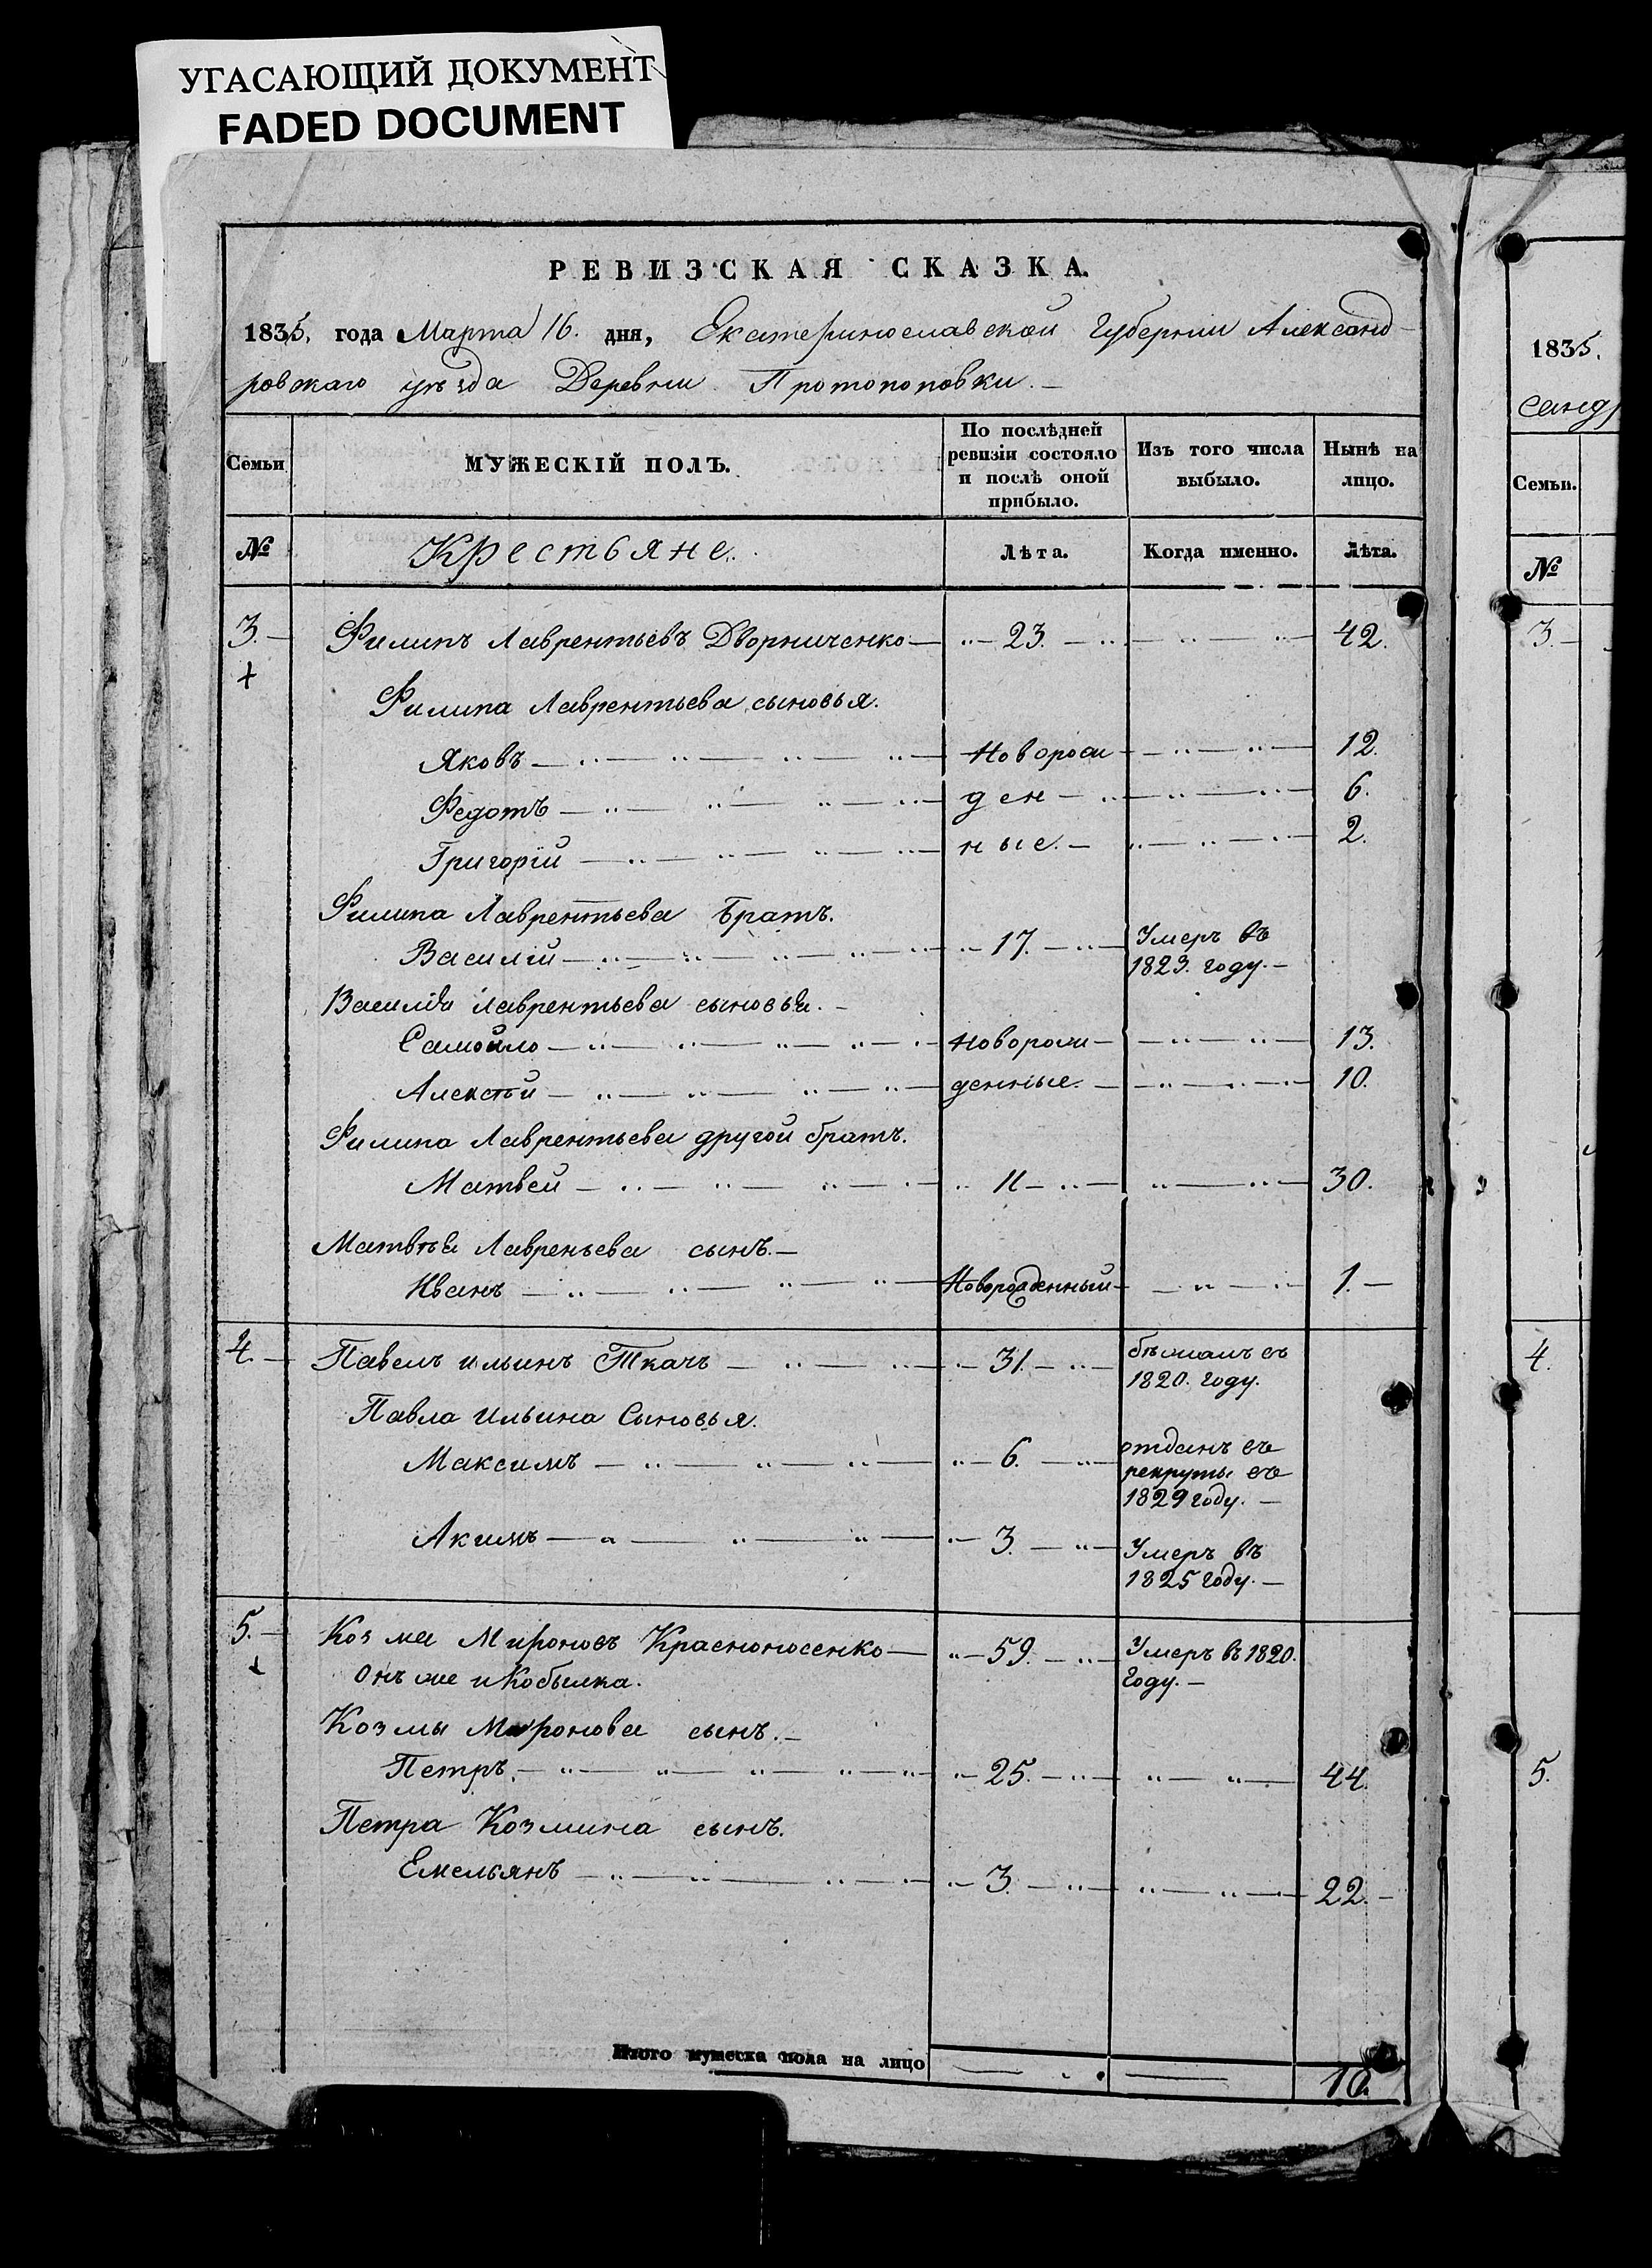 УГАСАЮЩИЙ ДОКУМЕНТ
FADED DOCUMENT
РЕВИЗСКАЯ СКАЗКА.
1835, года Марта 16. дня, Екатеринославской Губернии Александ-
ровскаго уѣзда Деревни Протопоповки.—
Семьи МУЖЕСКІЙ ПОЛЪ. По послѣдней ревизіи состояло и послѣ оной прибыло. Изъ того числа выбыло. Нынѣ на лицо.
№ Крестьяне. Лѣта. Когда именно. Лѣта.
3.— Филипъ Лаврентьевъ Дворниченко — 23. — 42.
Филипа Лаврентьева сыновья.
Яковъ — Новорож — 12.
Федотъ — ден — 6.
Григорій — ные. — 2.
Филипа Лаврентьева Братъ.
Василій — 17. — Умеръ въ
1823. году. —
Василія Лаврентьева сыновья. —
Самойло — Новорож — 13.
Алексѣй — денные. — 10.
Филипа Лаврентьева другой братъ.
Матвей — 11 — 30.
Матвѣя Лавреньева сынъ. —
Иванъ — Новорожденный — 1. —
4. — Павелъ Ильинъ Ткачъ — 31. — бѣжалъ въ
1820. году.
Павла Ильина Сыновья.
Максимъ — 6. — отданъ въ
рекруты въ
1829 году. —
Акимъ — 3. — Умеръ въ
1825 году. —
5. — Козма Мироновъ Красноносенко — 59. — Умеръ въ 1820.
Онъ же и Кобылка. году. —
Козмы Миронова сынъ. —
Петръ. — 25. — 44.
Петра Козмина сынъ.
Емельянъ — 3. — 22. —
Итого мужеска пола на лицо — 10.
1835.
санд
Семьи.
№
3. —
4.
5.